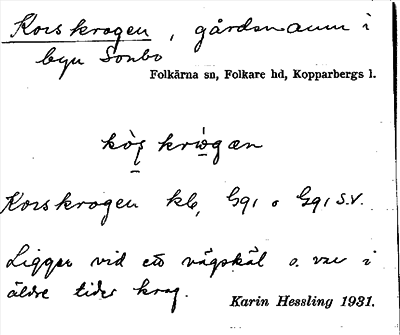 Korskrogen, gårdsnamn i
byn Sonbo
Folkärna sn, Folkare hd, Kopparbergs l.
Korskrogen kb, Gg1 o Gg1 S.V.
Ligger vid ett vägskäl o. var i
äldre tider krog.
Karin Hessling 1931.